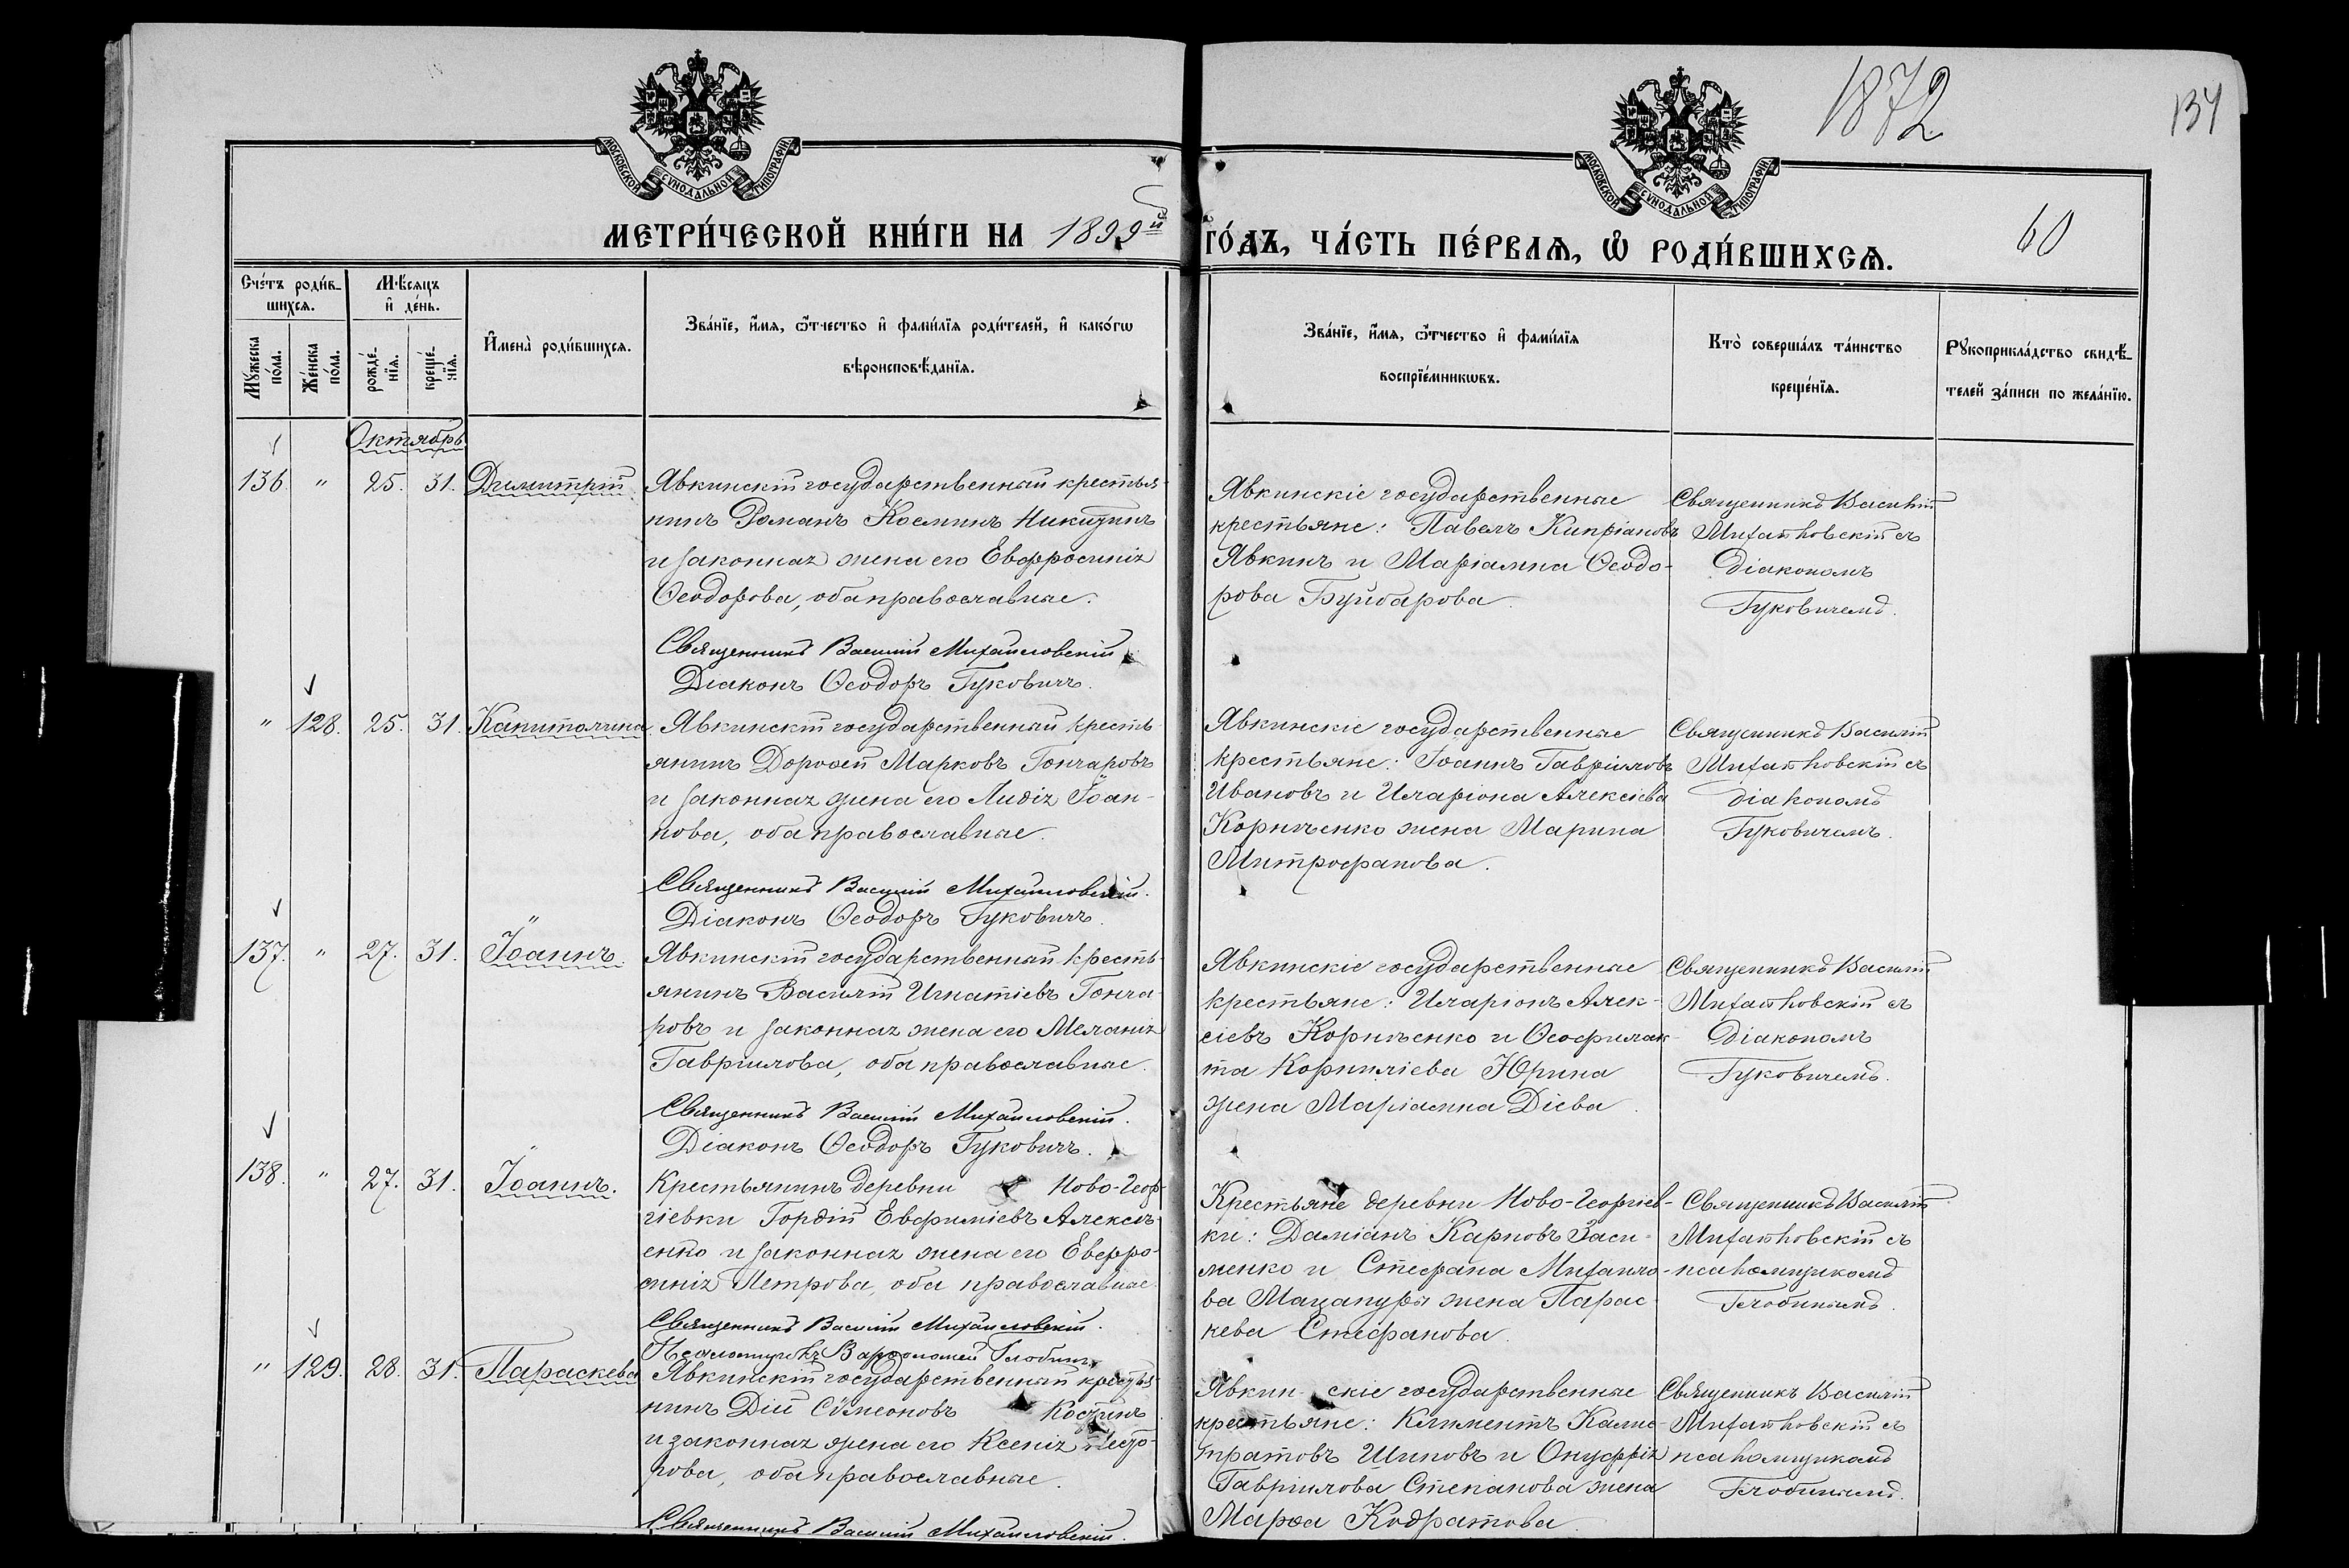 1872
134
60
МОСКОВСКОЙ СѴНОДАЛЬНОЙ ТИПОГРАФІИ
МОСКОВСКОЙ СѴНОДАЛЬНОЙ ТИПОГРАФІИ
МЕТРИ́ЧЕСКОЙ КНИ́ГИ НА 1899й ГО́ДЪ, ЧА́СТЬ ПЕ́РВАѦ, Ѡ҆ РОДИ́ВШИХСѦ.
Сче́тъ роди́в-
шихсѧ.
Мꙋ́жеска
по́ла.
Же́нска
по́ла.
Мѣ́сѧцъ
и҆ де́нь.
рожде́-
нїѧ.
креще́-
нїѧ.
И҆мена̀ роди́вшихсѧ.
Зва́нїе, и҆́мѧ, ѻ҆́тчество и҆ фами́лїѧ роди́телей, и҆ како́гѡ
вѣроисповѣ́данїѧ.
Зва́нїе, и҆́мѧ, ѻ҆́тчество и҆ фами́лїѧ
воспрїе́мникѡвъ.
Кто̀ соверша́лъ та́инство
креще́нїѧ.
Рꙋкоприкла́дство свидѣ́-
телей за́писи по жела́нїю.
Октябрь
136. " 25. 31. Димитрій
Явкинскій государственный крестья-
нинъ Романъ Косминъ Никитинъ
и законная жена его Евфросинія
Ѳеодорова, оба православные.
Священникъ Василій Михайловскій
Діаконъ Ѳеодоръ Гуковичъ.
Явкинскіе государственные
крестьяне: Павелъ Кипріановъ
Явкинъ и Маріамна Ѳеодо-
рова Буйбарова.
Священникъ Василій
Михайловскій съ
Діакономъ
Гуковичемъ.
" 128. 25. 31. Капитолина
Явкинскій государственный кресть-
янинъ Дороѳей Марковъ Гончаровъ
и законная жена его Лидія Іоан-
нова, оба православные.
Священникъ Василій Михайловскій.
Діаконъ Ѳеодоръ Гуковичъ.
Явкинскіе государственные
крестьяне: Іоаннъ Гавріиловъ
Ивановъ и Иларіона Алексіева
Корніенко жена Марина
Митрофанова.
Священникъ Василій
Михайловскій съ
діакономъ
Гуковичемъ.
137. " 27. 31. Іоаннъ.
Явкинскій государственный кресть-
янинъ Василій Игнатіевъ Гонча-
ровъ и законная жена его Меланія
Гавріилова, оба православные.
Священникъ Василій Михайловскій.
Діаконъ Ѳеодоръ Гуковичъ.
Явкинскіе государственные
крестьяне: Иларіонъ Алек-
сіевъ Корніенко и Ѳеофилак-
та Корниліева Юрина
жена Маріамна Діева.
Священникъ Василій
Михайловскій съ
Діакономъ
Гуковичемъ.
138. " 27. 31. Іоаннъ.
Крестьянинъ деревни Ново-Геор-
гіевки Гордій Евфиміевъ Алексѣ-
енко и законная жена его Евфро-
синія Петрова, оба православные
Священникъ Василій Михайловскій.
Псаломщикъ Варѳоломей Глобинъ.
Крестьяне деревни Ново-Георгіев-
ки: Даміанъ Карповъ Заси-
менко и Стефана Михаило-
ва Мацапуры жена Парас-
кева Стефанова.
Священникъ Василій
Михайловскій съ
псаломщикомъ
Глобинымъ.
" 129. 28. 31. Параскева
Явкинскій государственный крестья-
нинъ Дій Сѵмеоновъ Костинъ
и законная жена его Ксенія Несто-
рова, оба православные.
Священникъ Василій Михайловскій.
Явкинскіе государственные
крестьяне: Климентъ Калис-
тратовъ Шиповъ и Онуфрія
Гавріилова Степанова жена
Марѳа Кодратова.
Священникъ Василій
Михайловскій съ
псаломщикомъ
Глобинымъ.